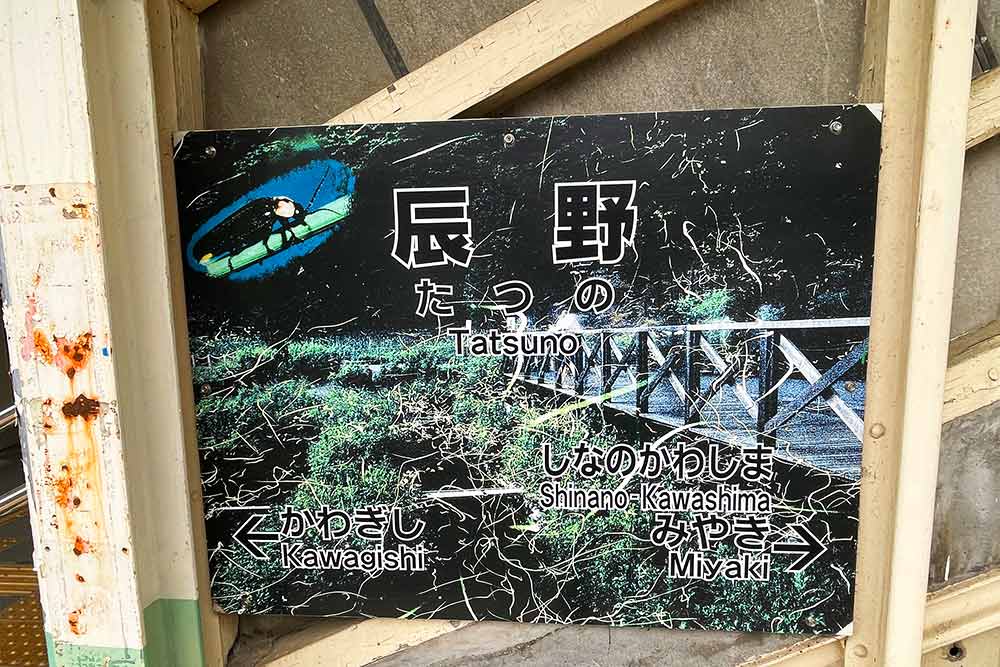 辰野
たつの
Tatsuno
しなのかわしま
Shinano-Kawashima
← かわぎし
Kawagishi
みやき →
Miyaki